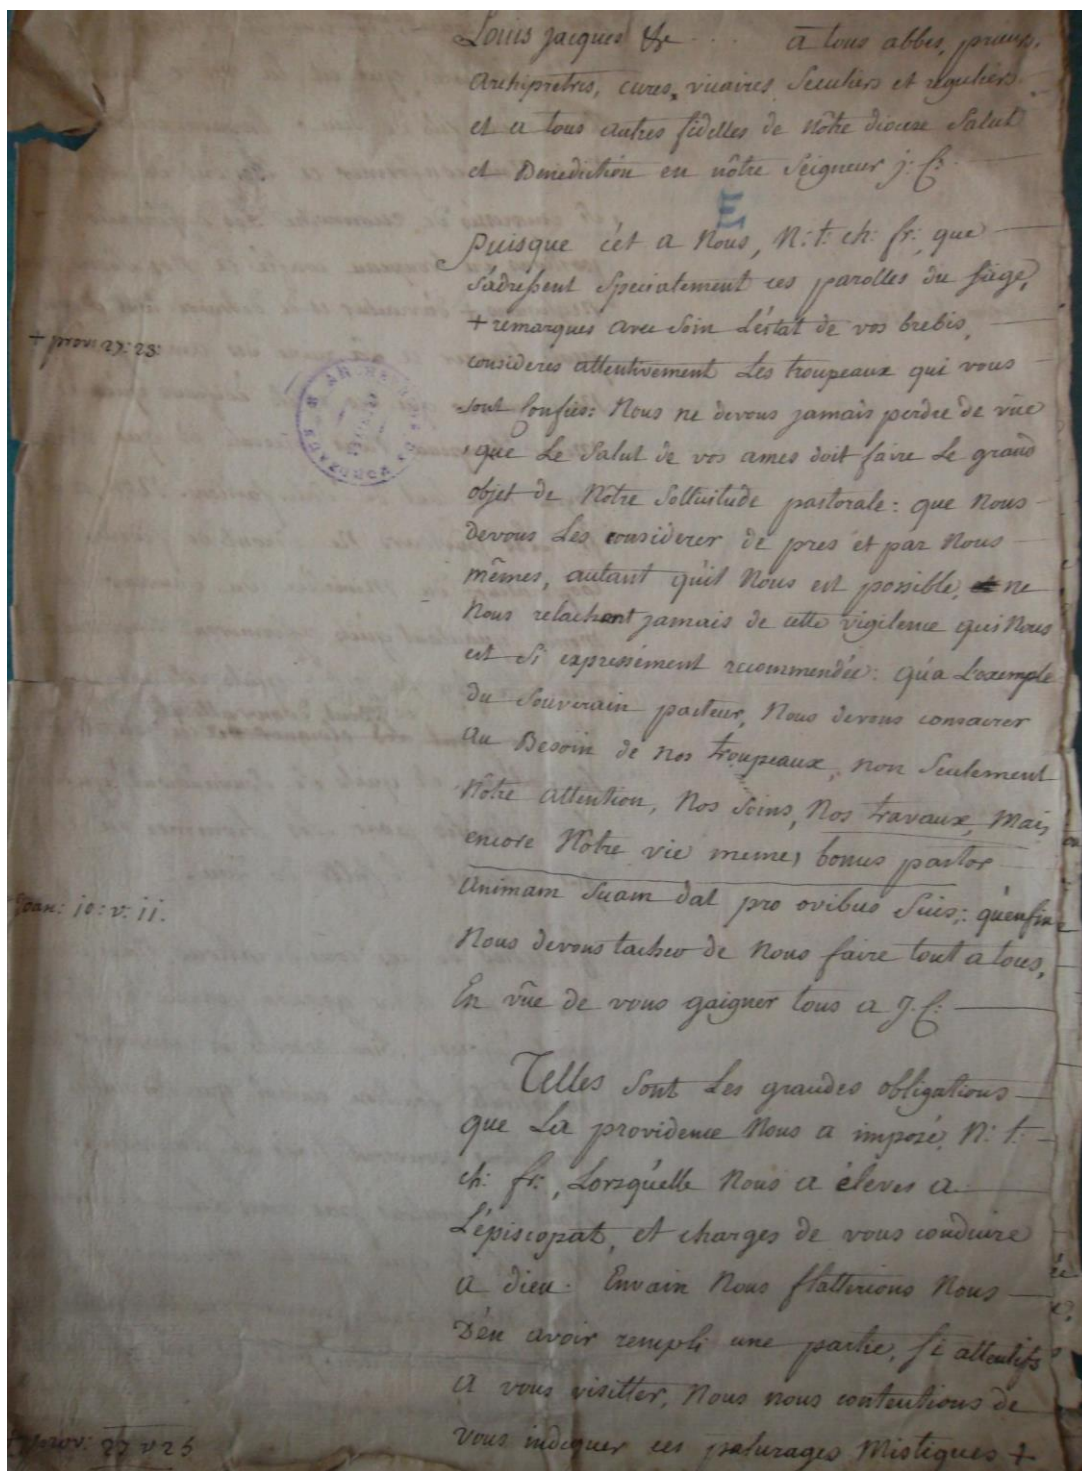 Louis Jacques &c ... a tous abbés, prieurs,
Archiprêtres, cures, vicaires Seculiers et reguliers
et a tous autres fidelles de nôtre diocese Salut
et Benediction en nôtre Seigneur j: C:
E
Puisque c'ét a Nous, N: t: ch: fr: que
s'adressent Specialement ces parolles du sage,
+ remarques avec soin L'éstat de vos brebis,
+ prov. 27: 23:
consideres attentivement Les troupeaux qui vous
sont Confiés: Nous ne devons jamais perdre de vüe
que Le Salut de vos ames doit faire Le grand
objet de Nôtre Sollicitude pastorale: que Nous
devons Les considerer de pres et par Nous
mêmes, autant qu'il Nous est possible, ne
Nous relachant jamais de cette vigilence qui Nous
est Si expressément recommendée: qu'a L'exemple
du Souverain pasteur, Nous devons consacrer
au Besoin de nos troupeaux, non seulement
Nôtre attention, Nos Soins, Nos travaux, Mais
encore Nôtre vie meme, bonus pastor
animam suam dat pro ovibus Suis: qu'enfin
Joan: 10: v: 11.
Nous devons tacher de Nous faire tout a tous,
En vüe de vous gaigner tous a J. C:
Telles Sont Les grandes obligations
que La providence Nous a imposé, N: t:
ch: fr:, Lorsqu'elle Nous a élevés a
L'épiscopat, et charges de vous conduire
a dieu. Envain Nous flatterions Nous
D'en avoir rempli une partie, Si attentifs
a vous visitter, Nous nous contentions de
vous indiquer ces paturages Mistiques +
+ prov: 27 v 25